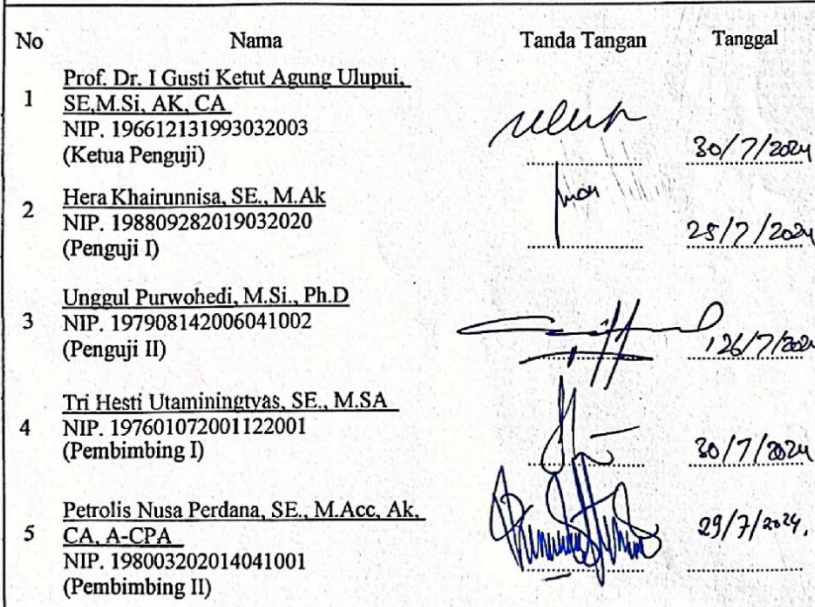 No Nama Tanda Tangan Tanggal
1 Prof. Dr. I Gusti Ketut Agung Ulupui,
SE,M.Si, AK, CA
NIP. 196612131993032003
(Ketua Penguji) 30/7/2024
2 Hera Khairunnisa, SE., M.Ak
NIP. 198809282019032020
(Penguji I) 25/7/2024
3 Unggul Purwohedi, M.Si., Ph.D
NIP. 197908142006041002
(Penguji II) 26/7/2024
4 Tri Hesti Utaminingtyas, SE., M.SA
NIP. 197601072001122001
(Pembimbing I) 30/7/2024
5 Petrolis Nusa Perdana, SE., M.Acc, Ak,
CA, A-CPA 29/7/2024.
NIP. 198003202014041001
(Pembimbing II)